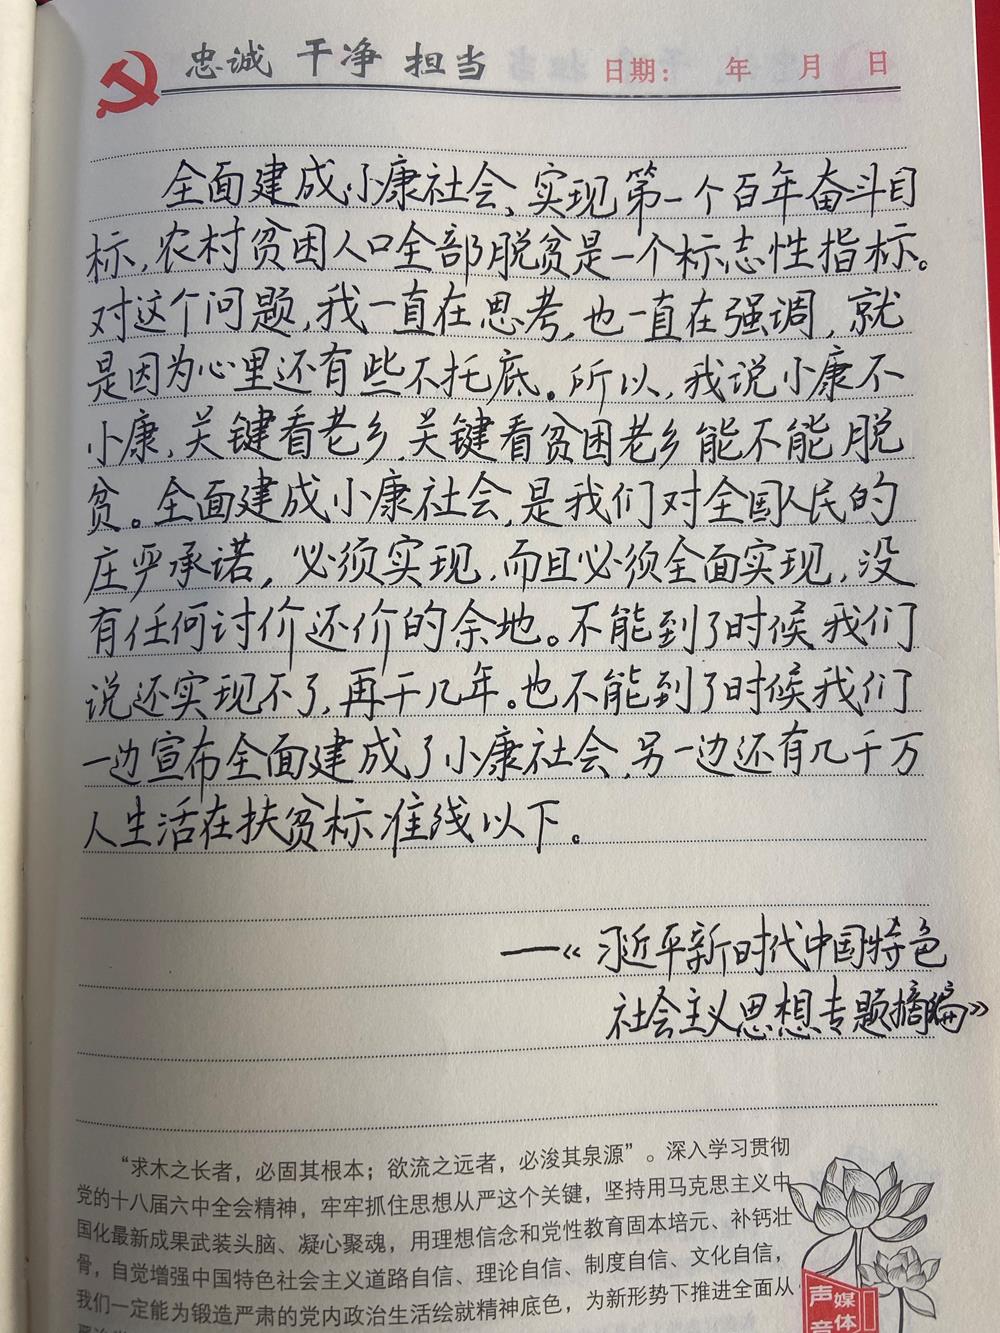 忠诚 干净 担当
日期： 年 月 日
全面建成小康社会、实现第一个百年奋斗目
标，农村贫困人口全部脱贫是一个标志性指标。
对这个问题，我一直在思考，也一直在强调，就
是因为心里还有些不托底。所以，我说小康不
小康，关键看老乡，关键看贫困老乡能不能脱
贫。全面建成小康社会，是我们对全国人民的
庄严承诺，必须实现，而且必须全面实现，没
有任何讨价还价的余地。不能到了时候我们
说还实现不了，再干几年。也不能到了时候我们
一边宣布全面建成了小康社会，另一边还有几千万
人生活在扶贫标准线以下。
——《习近平新时代中国特色
社会主义思想专题摘编》
“求木之长者，必固其根本；欲流之远者，必浚其泉源”。深入学习贯彻
党的十八届六中全会精神，牢牢抓住思想从严这个关键，坚持用马克思主义中
国化最新成果武装头脑、凝心聚魂，用理想信念和党性教育固本培元、补钙壮
骨，自觉增强中国特色社会主义道路自信、理论自信、制度自信、文化自信，
我们一定能为锻造严肃的党内政治生活绘就精神底色，为新形势下推进全面从
媒体
声音